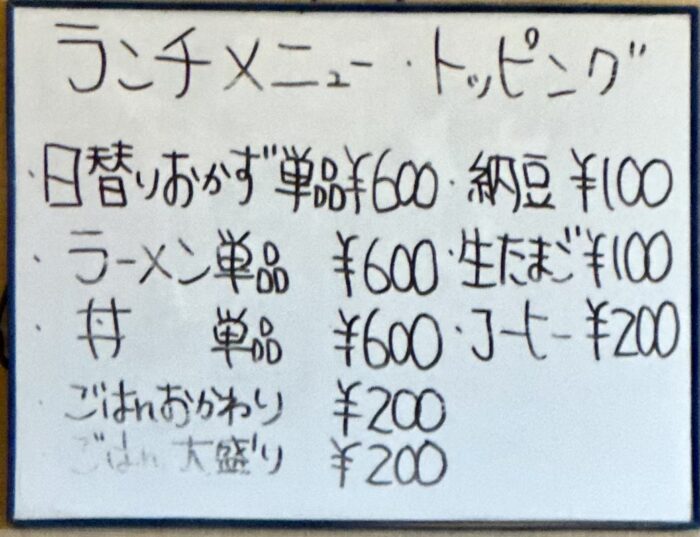 ランチメニュー・トッピング
・日替りおかず単品¥600・納豆¥100
・ラーメン単品 ¥600・生たまご¥100
・丼 単品 ¥600・コーヒー¥200
・ごはんおかわり ¥200
ごはん 大盛り ¥200